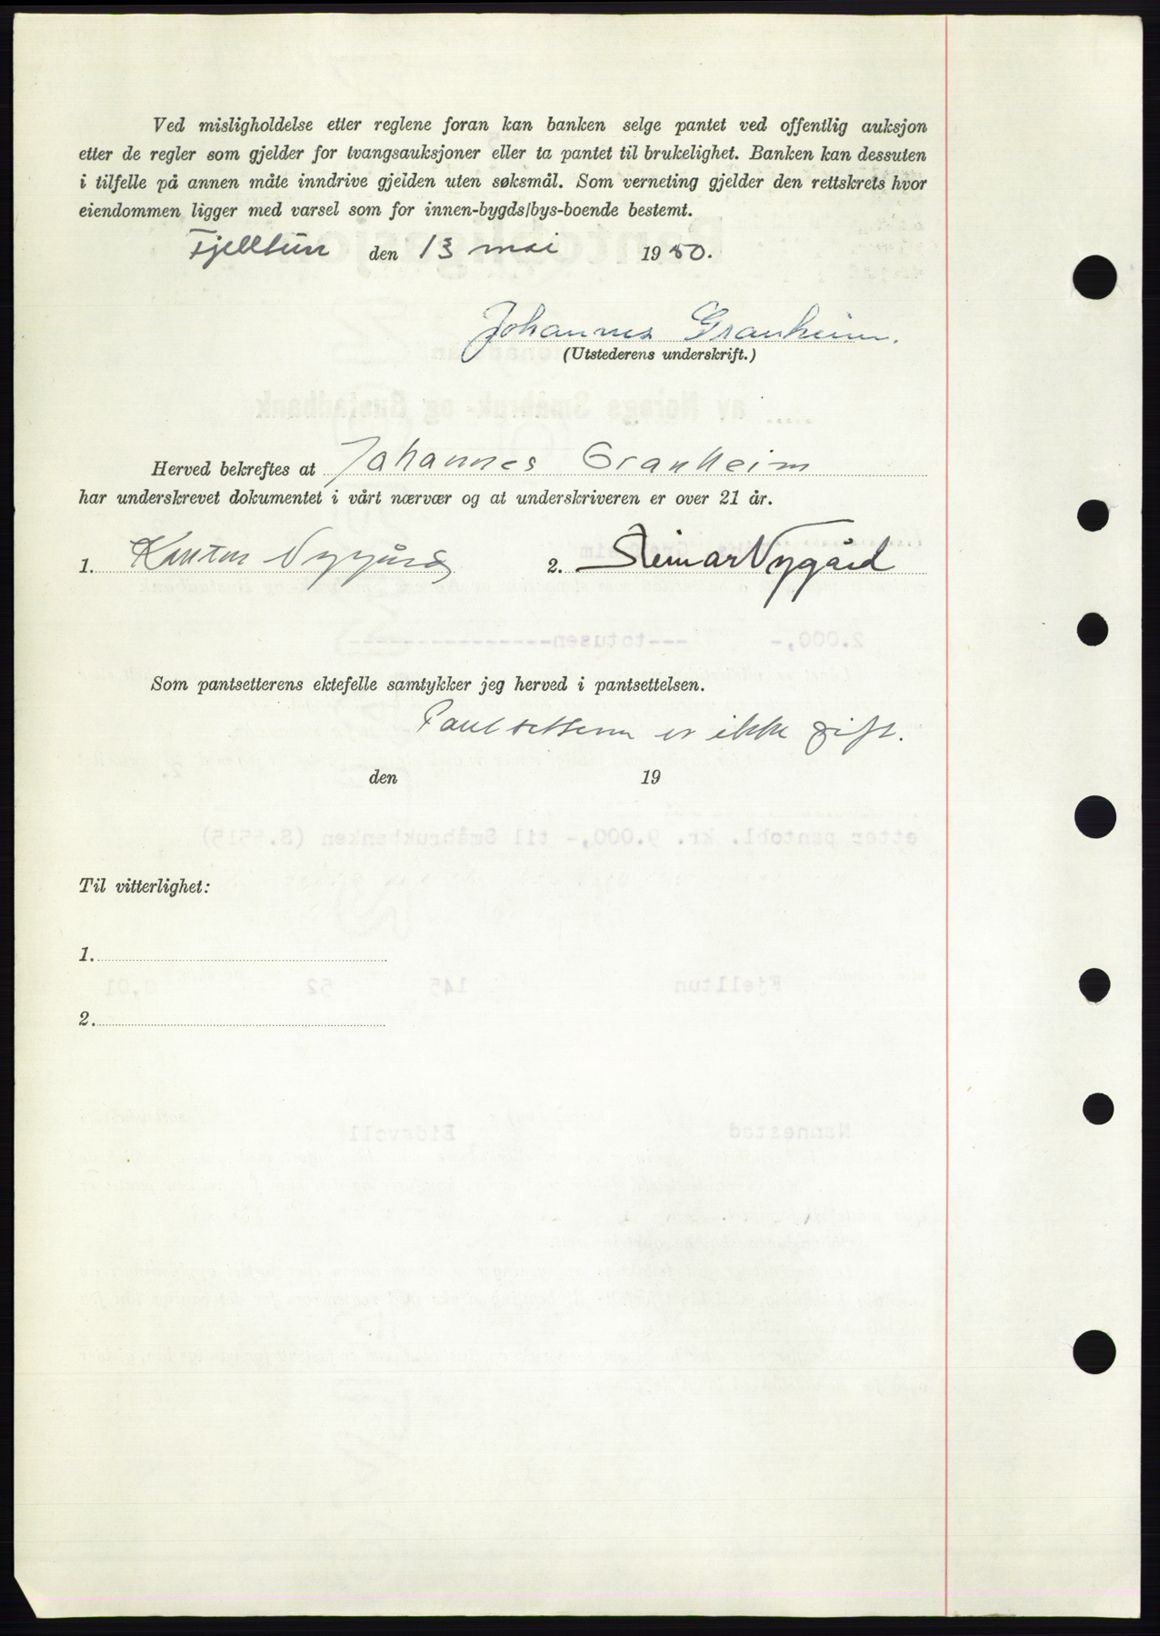 Ved misligholdelse etter reglene foran kan banken selge pantet ved offentlig auksjon
etter de regler som gjelder for tvangsauksjoner eller ta pantet til brukelighet. Banken kan dessuten
i tilfelle på annen måte inndrive gjelden uten søksmål. Som verneting gjelder den rettskrets hvor
eiendommen ligger med varsel som for innen-bygds/bys-boende bestemt.
Fjelltun den 13 mai 1950.
Johannes Granheim.
(Utstederens underskrift.)
Herved bekreftes at Johannes Granheim
har underskrevet dokumentet i vårt nærvær og at underskriveren er over 21 år.
1. Nygård 2. Steinar Nygård
Som pantsetterens ektefelle samtykker jeg herved i pantsettelsen.
Pantsetteren er ikke gift.
den 19
Til vitterlighet:
1.
2.